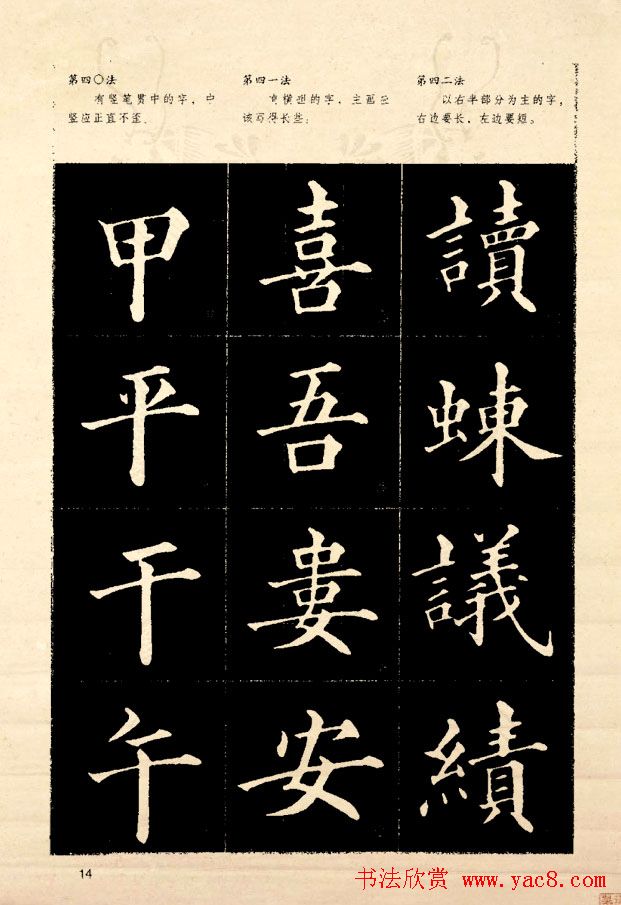 第四〇法
有竖笔贯中的字，中
竖应正直不歪。
第四一法
有横画的字，主画应
该写得长些。
第四二法
以右半部分为主的字，
右边要长，左边要短。
甲
平
干
午
喜
吾
婁
安
讀
蝀
議
績
14
书法欣赏 www.yac8.com